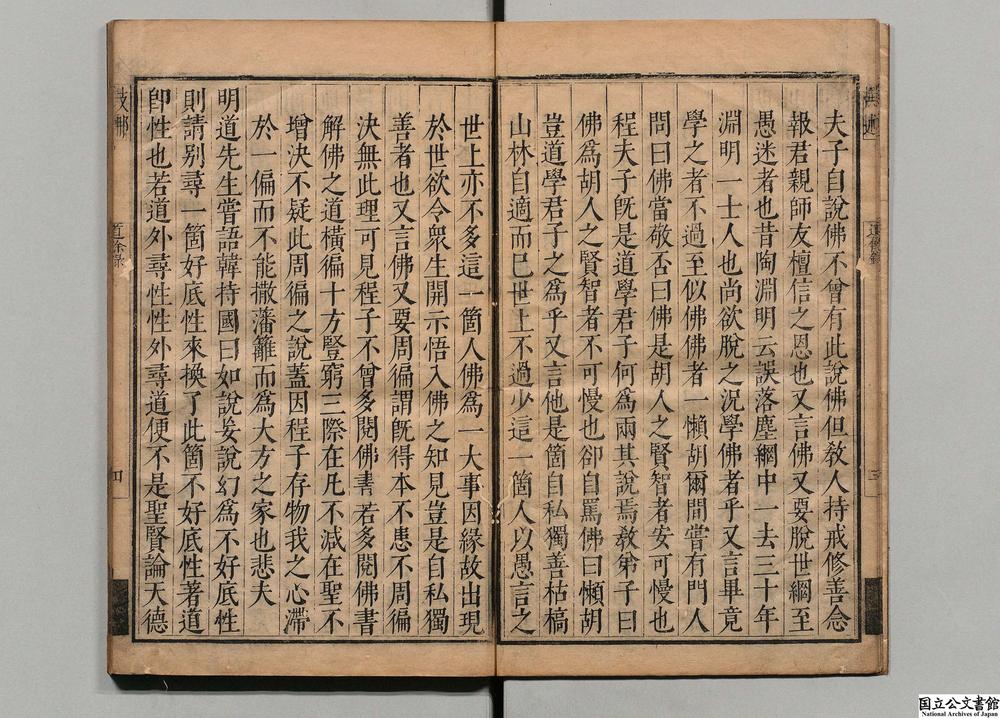 夫子自說佛不曾有此說佛但敎人持戒修善念
報君親師友檀信之恩也又言佛又要脫世網至
愚迷者也昔陶淵明云誤落塵網中一去三十年
淵明一士人也尚欲脫之況學佛者乎又言畢竟
學之者不過至似佛佛者一懶胡爾間嘗有門人
問曰佛當敬否曰佛是胡人之賢智者安可慢也
程夫子旣是道學君子何爲兩其說焉敎弟子曰
佛爲胡人之賢智者不可慢也卻自罵佛曰懶胡
豈道學君子之爲乎又言他是箇自私獨善枯槁
山林自適而已世上不過少這一箇人以愚言之
世上亦不多這一箇人佛爲一大事因緣故出現
於世欲令衆生開示悟入佛之知見豈是自私獨
善者也又言佛又要周徧謂旣得本不患不周徧
決無此理可見程子不曾多閱佛書若多閱佛書
解佛之道橫徧十方豎窮三際在凡不減在聖不
增決不疑此周徧之說蓋因程子存物我之心滯
於一偏而不能撒藩籬而爲大方之家也悲夫
明道先生嘗語韓持國曰如說妄說幻爲不好底性
則請别尋一箇好底性來換了此箇不好底性著道
卽性也若道外尋性性外尋道便不是聖賢論天德
道餘錄
四
国立公文書館
National Archives of Japan